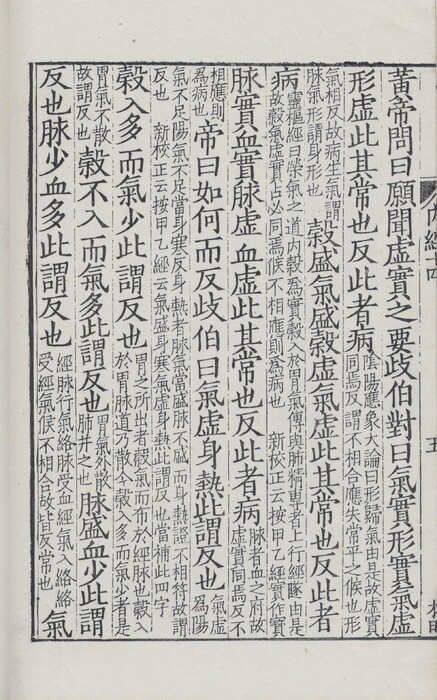 黃帝問曰願聞虛實之要歧伯對曰氣實形實氣虛
形虛此其常也反此者病
陰陽應象大論曰形歸氣由是故虛實
同焉反謂不相合應失常平之候也形
氣相反故病生氣謂
脉氣形謂身形也
穀盛氣盛穀虛氣虛此其常也反此者
病
靈樞經曰榮氣之道内穀爲實穀入於胃氣傳與肺精專者上行經隧由是
故穀氣虛實占必同焉候不相應則爲病也 新校正云按甲乙經實作寳
脉實血實脉虛血虛此其常也反此者病
脉者血之府故
虛實同焉反不
相應則
爲病也
帝曰如何而反歧伯曰氣虛身熱此謂反也
氣虛
爲陽
氣不足陽氣不足當身寒反身熱者脉氣當盛脉不盛而身熱證不相符故謂
反也 新校正云按甲乙經云氣盛身寒氣虛身熱此謂反也當補此四字
穀入多而氣少此謂反也
胃之所出者穀氣而布於經脉也穀入
於胃脉道乃散今穀入多而氣少者是
胃氣不散
故謂反也
穀不入而氣多此謂反也
胃氣外散
肺并之也
脉盛血少此謂
反也脉少血多此謂反也
經脉行氣絡脉受血經氣入絡絡
受經氣候不相合故皆反常也
氣